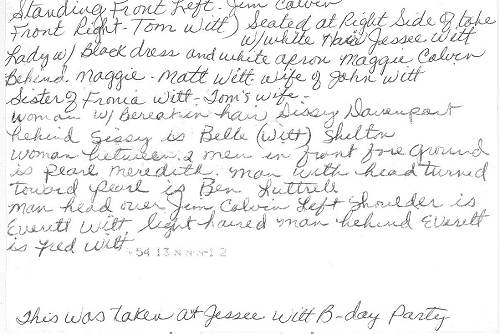 Standing Front Left - Jim Calvin
Front Right - Tom Witt) Seated at Right Side of tape
w/white Hair Jessee Witt
Lady w/ Black dress and white apron Maggie Calvin
Behind. Maggie - Matt Witt - wife of John Witt
Sister of Fronia Witt - Tom's wife.
Woman w/ Beret on hair Sissy Davenport
behind Sissy is Belle (Witt) Shelton
Woman between 2 men in front fore ground
is Pearl Meredith. Man with head turned
toward Pearl is Ben Luttrell
Man head over Jim Calvin Left Shoulder is
Everett Witt, light haired man behind Everett
is Fred Witt
54 13 N N N-1 2
This was taken at Jessee Witt B-day Party